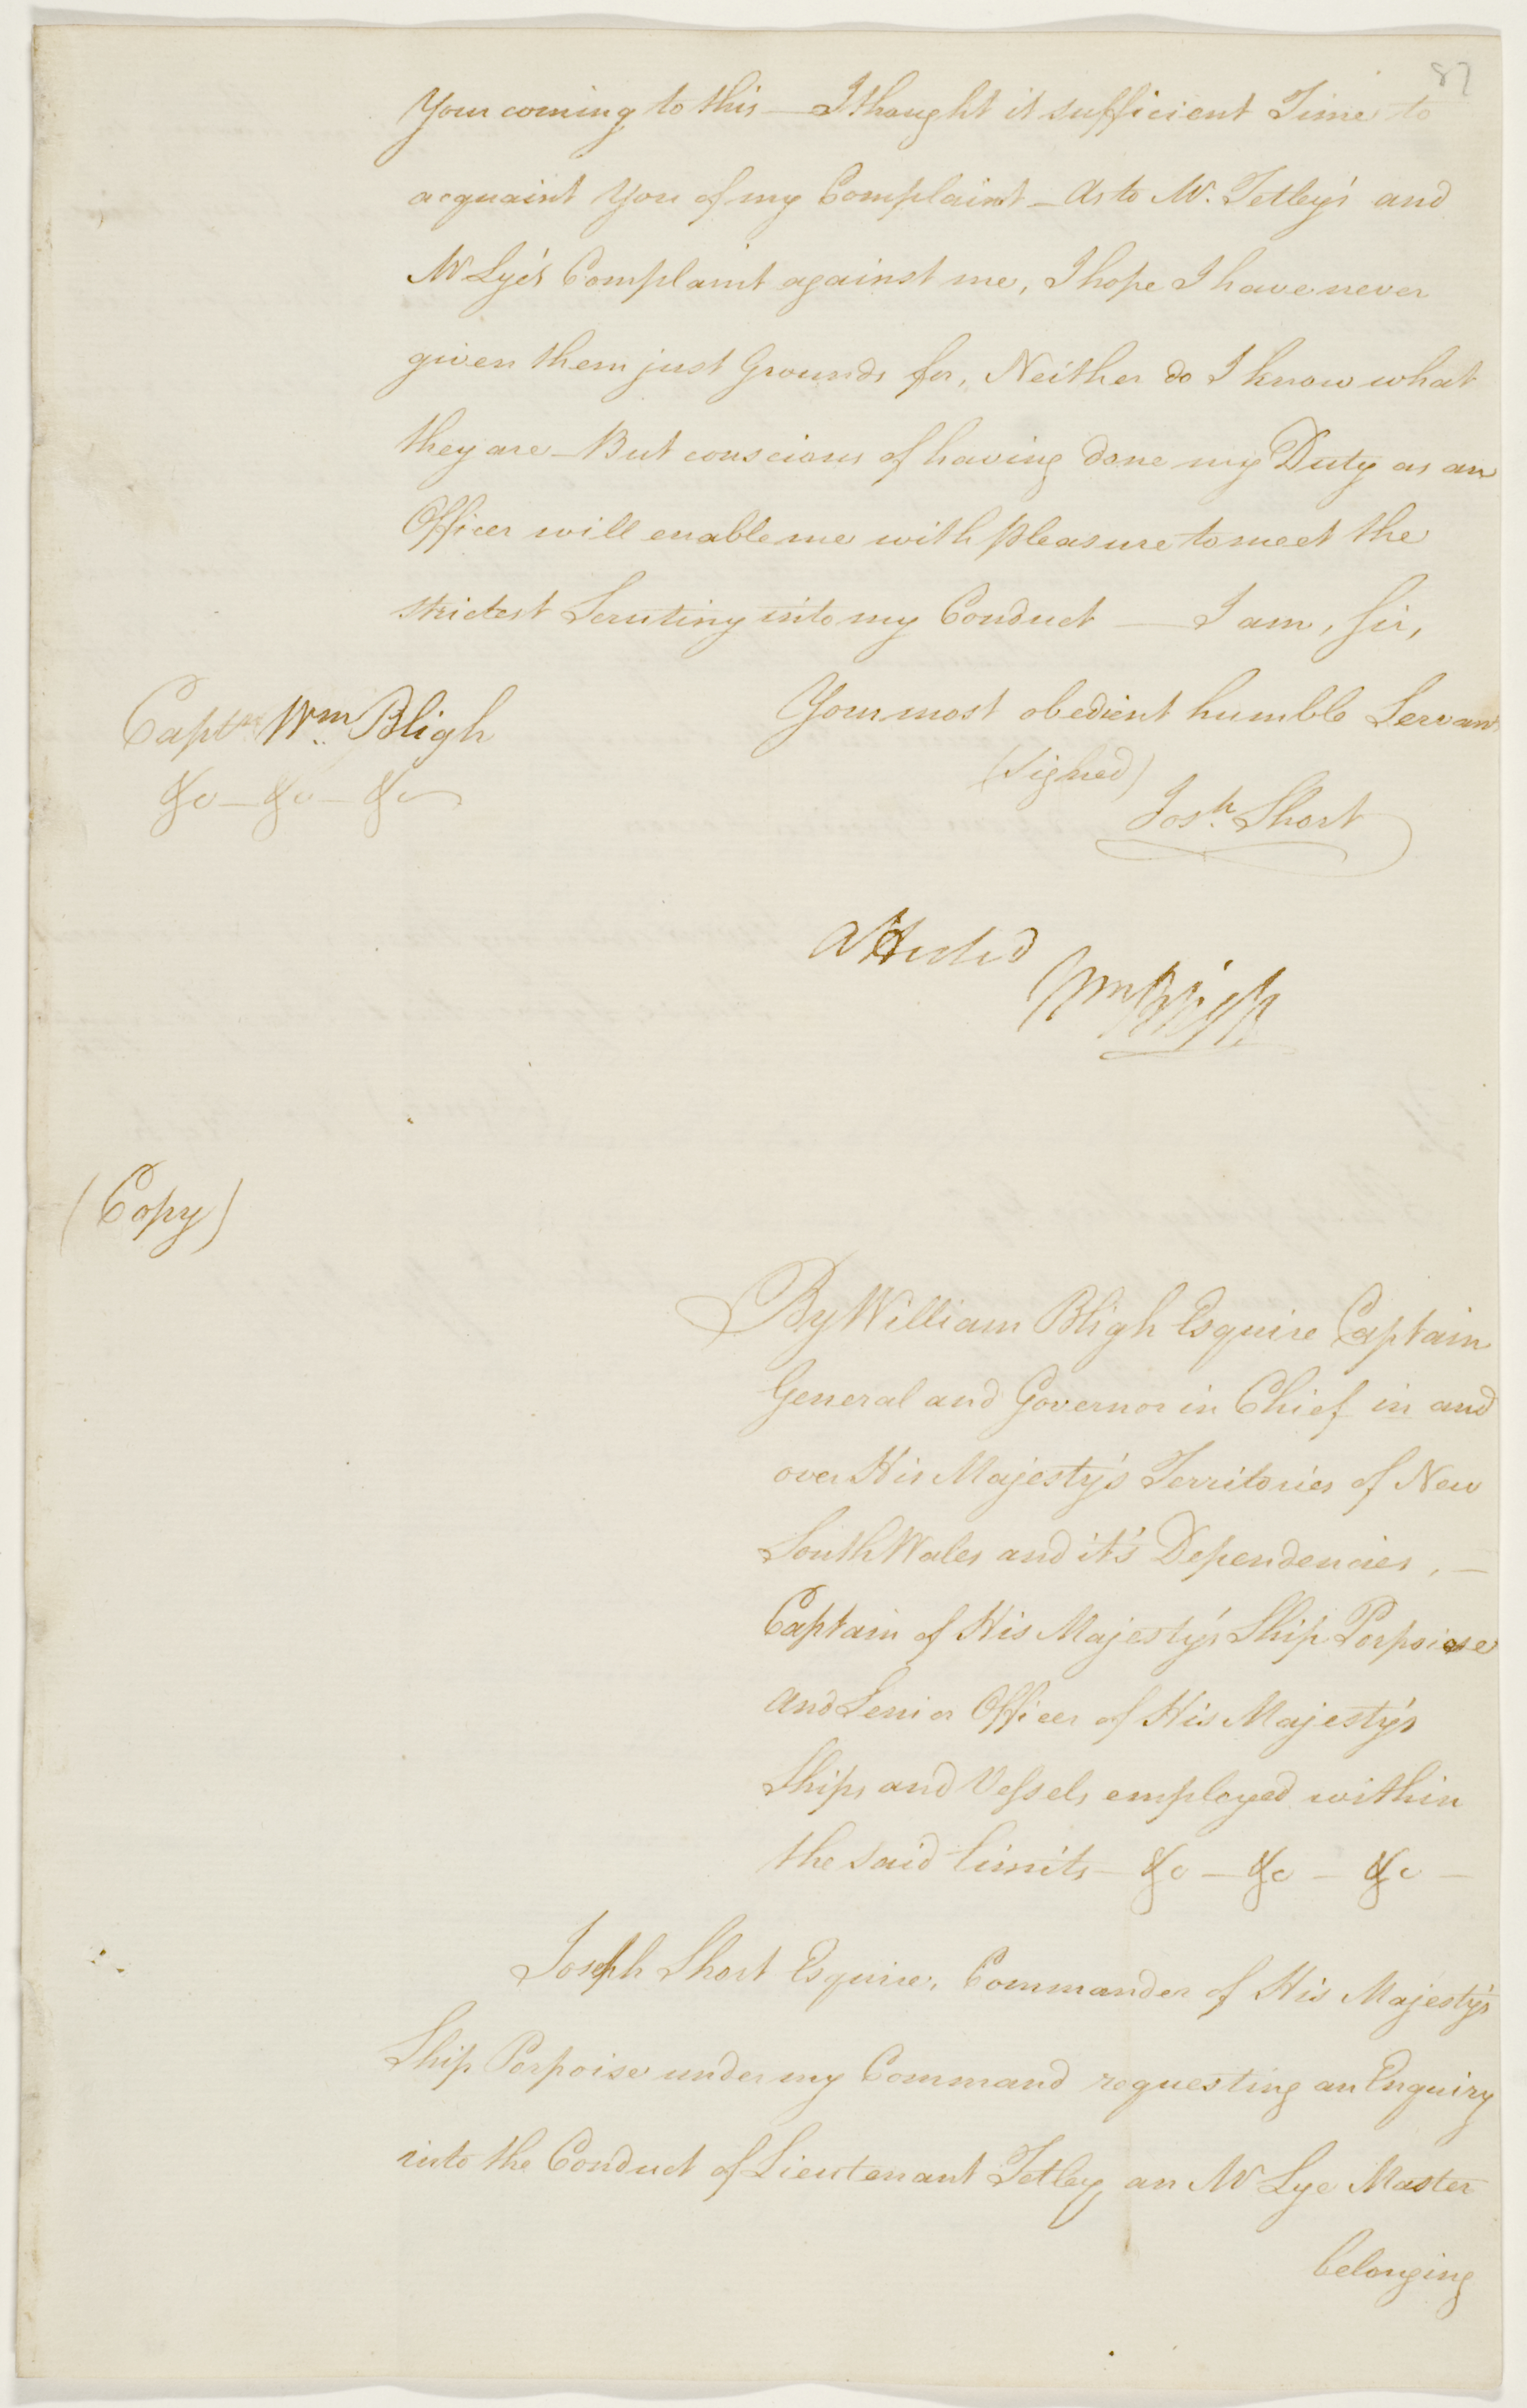 87
Your coming to this — I thought it sufficient Time to
acquaint You of my Complaint — As to Mr. Tetley's and
Mr Lye's Complaint against me, I hope I have never
given them just Grounds for, Neither do I know what
they are — But conscious of having done my Duty as an
Officer will enable me with pleasure to meet the
strictest Scrutiny into my Conduct — I am, Sir,
Your most obedient humble Servant
Captn Wm Bligh
&c — &c — &c
(Signed)
Josh. Short
Attested
Wm Bligh
(Copy)
By William Bligh Esquire Captain
General and Governor in Chief in and
over His Majesty's Territories of New
South Wales and it's Dependencies, —
Captain of His Majesty's Ship Porpoise
and Senior Officer of His Majesty's
Ships and Vessels employed within
the said limits — &c — &c — &c —
Joseph Short Esquire, Commander of His Majesty's
Ship Porpoise under my Command requesting an Enquiry
into the Conduct of Lieutenant Tetley an Mr Lye Master
belonging